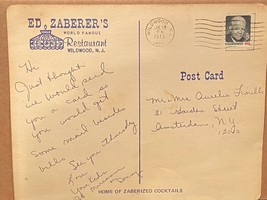 ED. ZABERER'S
WORLD FAMOUS
Restaurant
WILDWOOD, N.J.
Hi
Just thought
we would send
you a card so
you would get
some mail besides
bills. See you Thursday
Love
Post Card
Mr. Mrs Aurelio
21 Street
Amsterdam, N.Y
12010
HOME OF ZABERIZED COCKTAILS